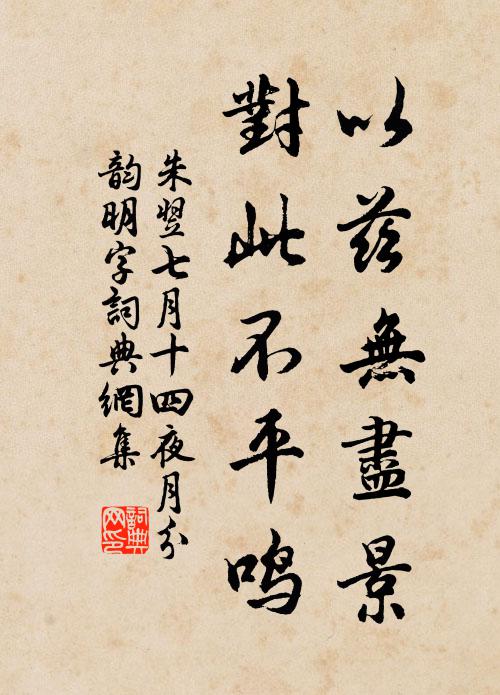 以茲無盡景
對此不平鸣
朱翌七月十四夜月分
韵明字詞典網集
詞典网印